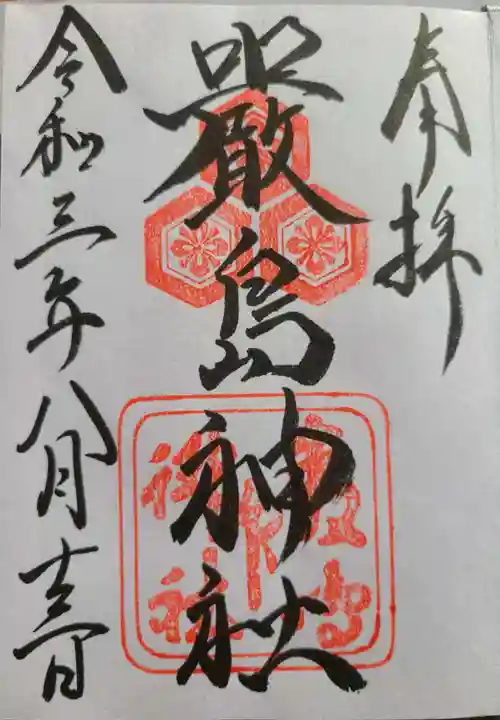 奉拝
嚴島神社
令和三年八月吉日